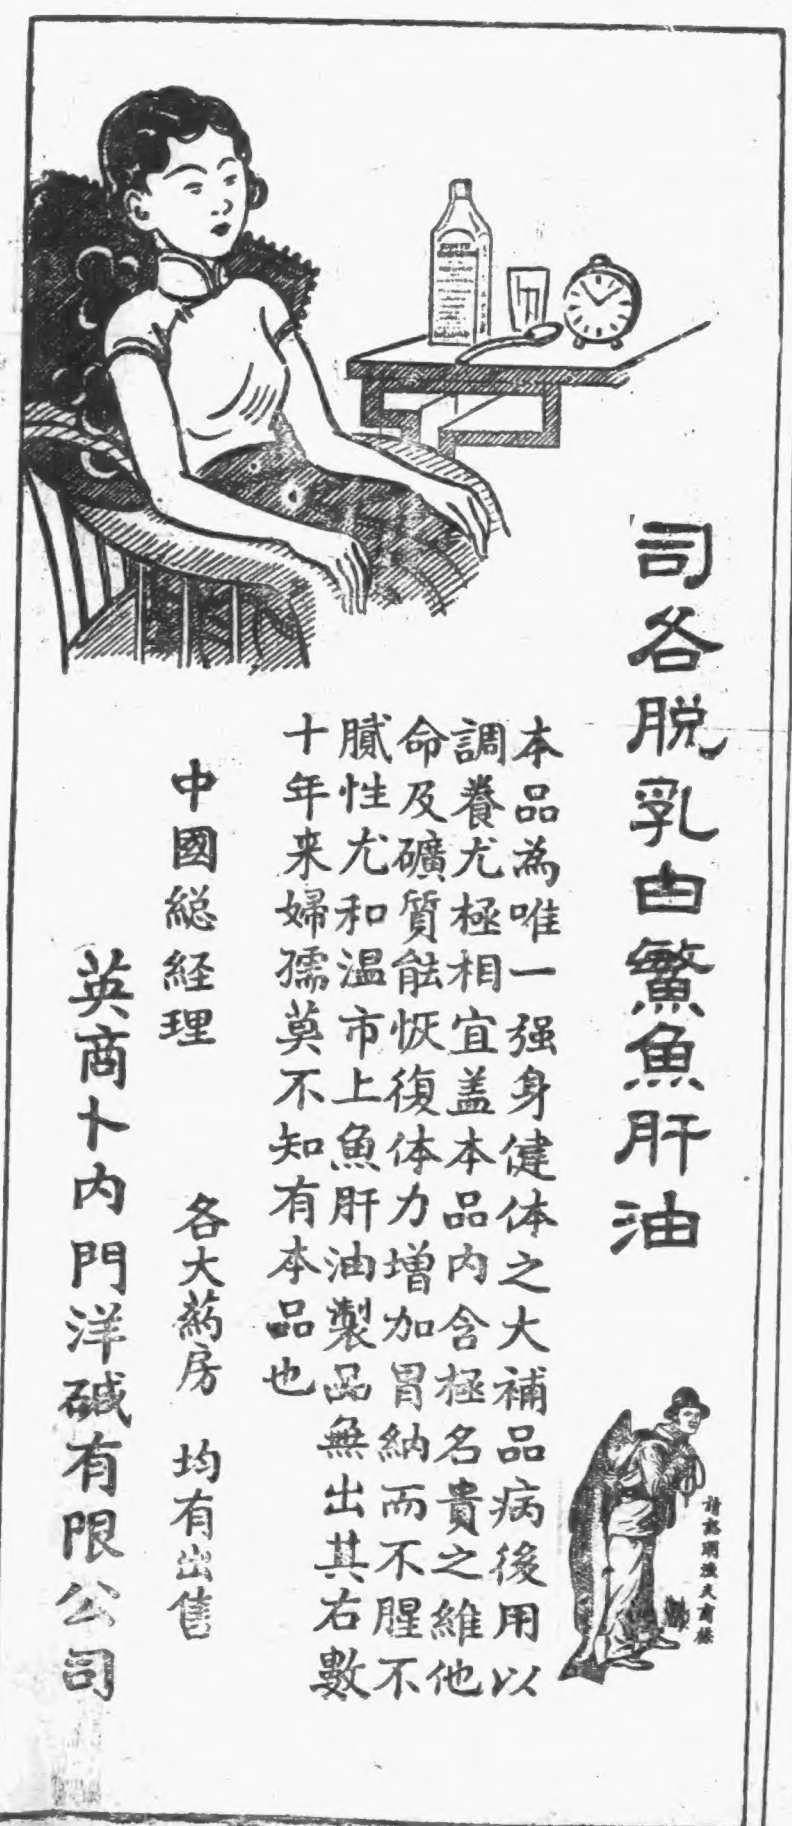 司各脱乳白鰵魚肝油
請認明漁夫商標
本品為唯一强身健体之大補品病後用以
調養尤極相宜盖本品内含極名貴之維他
命及礦質能恢復体力增加胃納而不腥不
膩性尤和温市上魚肝油製品無出其右數
十年来婦孺莫不知有本品也
中國総経理
各大葯房 均有出售
英商卜内門洋碱有限公司